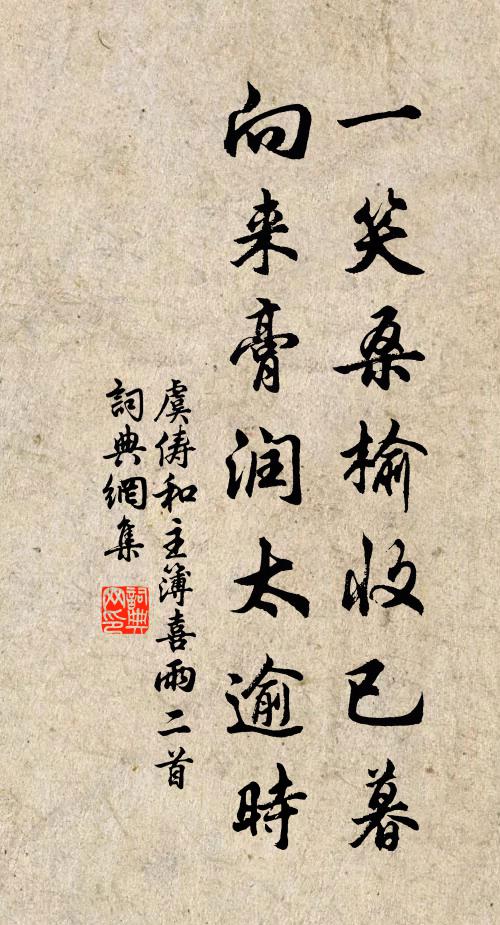 一笑桑榆收已暮
向来膏润太逾時
虞儔和主簿喜雨二首
詞典網集
詞典网印